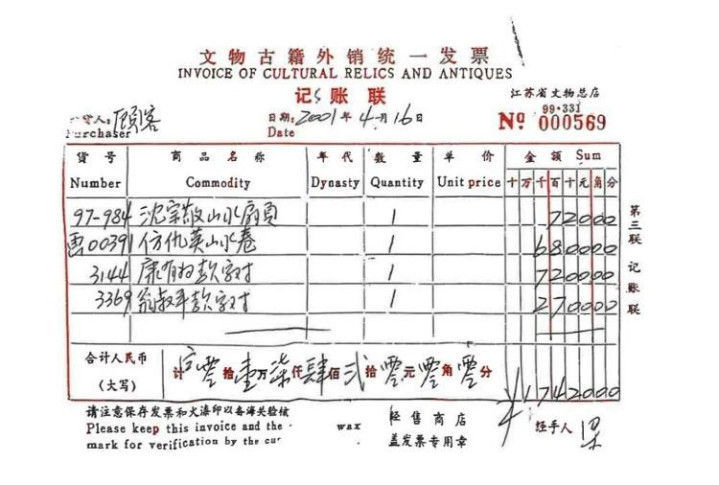 文物古籍外销统一发票
INVOICE OF CULTURAL RELICS AND ANTIQUES
记账联
江苏省文物总店
99·331
货人:顾客
Purchaser
日期:2001年4月16日
Date
Nº 000569
货号 商品名称 年代 数量 单价 金额 Sum
Number Commodity Dynasty Quantity Unit price 十万千百十元角分
97-984 沈宗敬山水扇页 1 72000
画00391 仿仇英山水卷 1 680000
3144 康有为款字对 1 720000
3369 翁叔平款字对 1 270000
合计人民币
(大写)
计 零拾壹万柒仟肆佰贰拾零元零角零分 ¥1742000
第三联 记账联
请注意保存发票和火漆印以备海关验核
Please keep this invoice and the wax
mark for verification by the
经售商店
盖发票专用章
经手人 梁